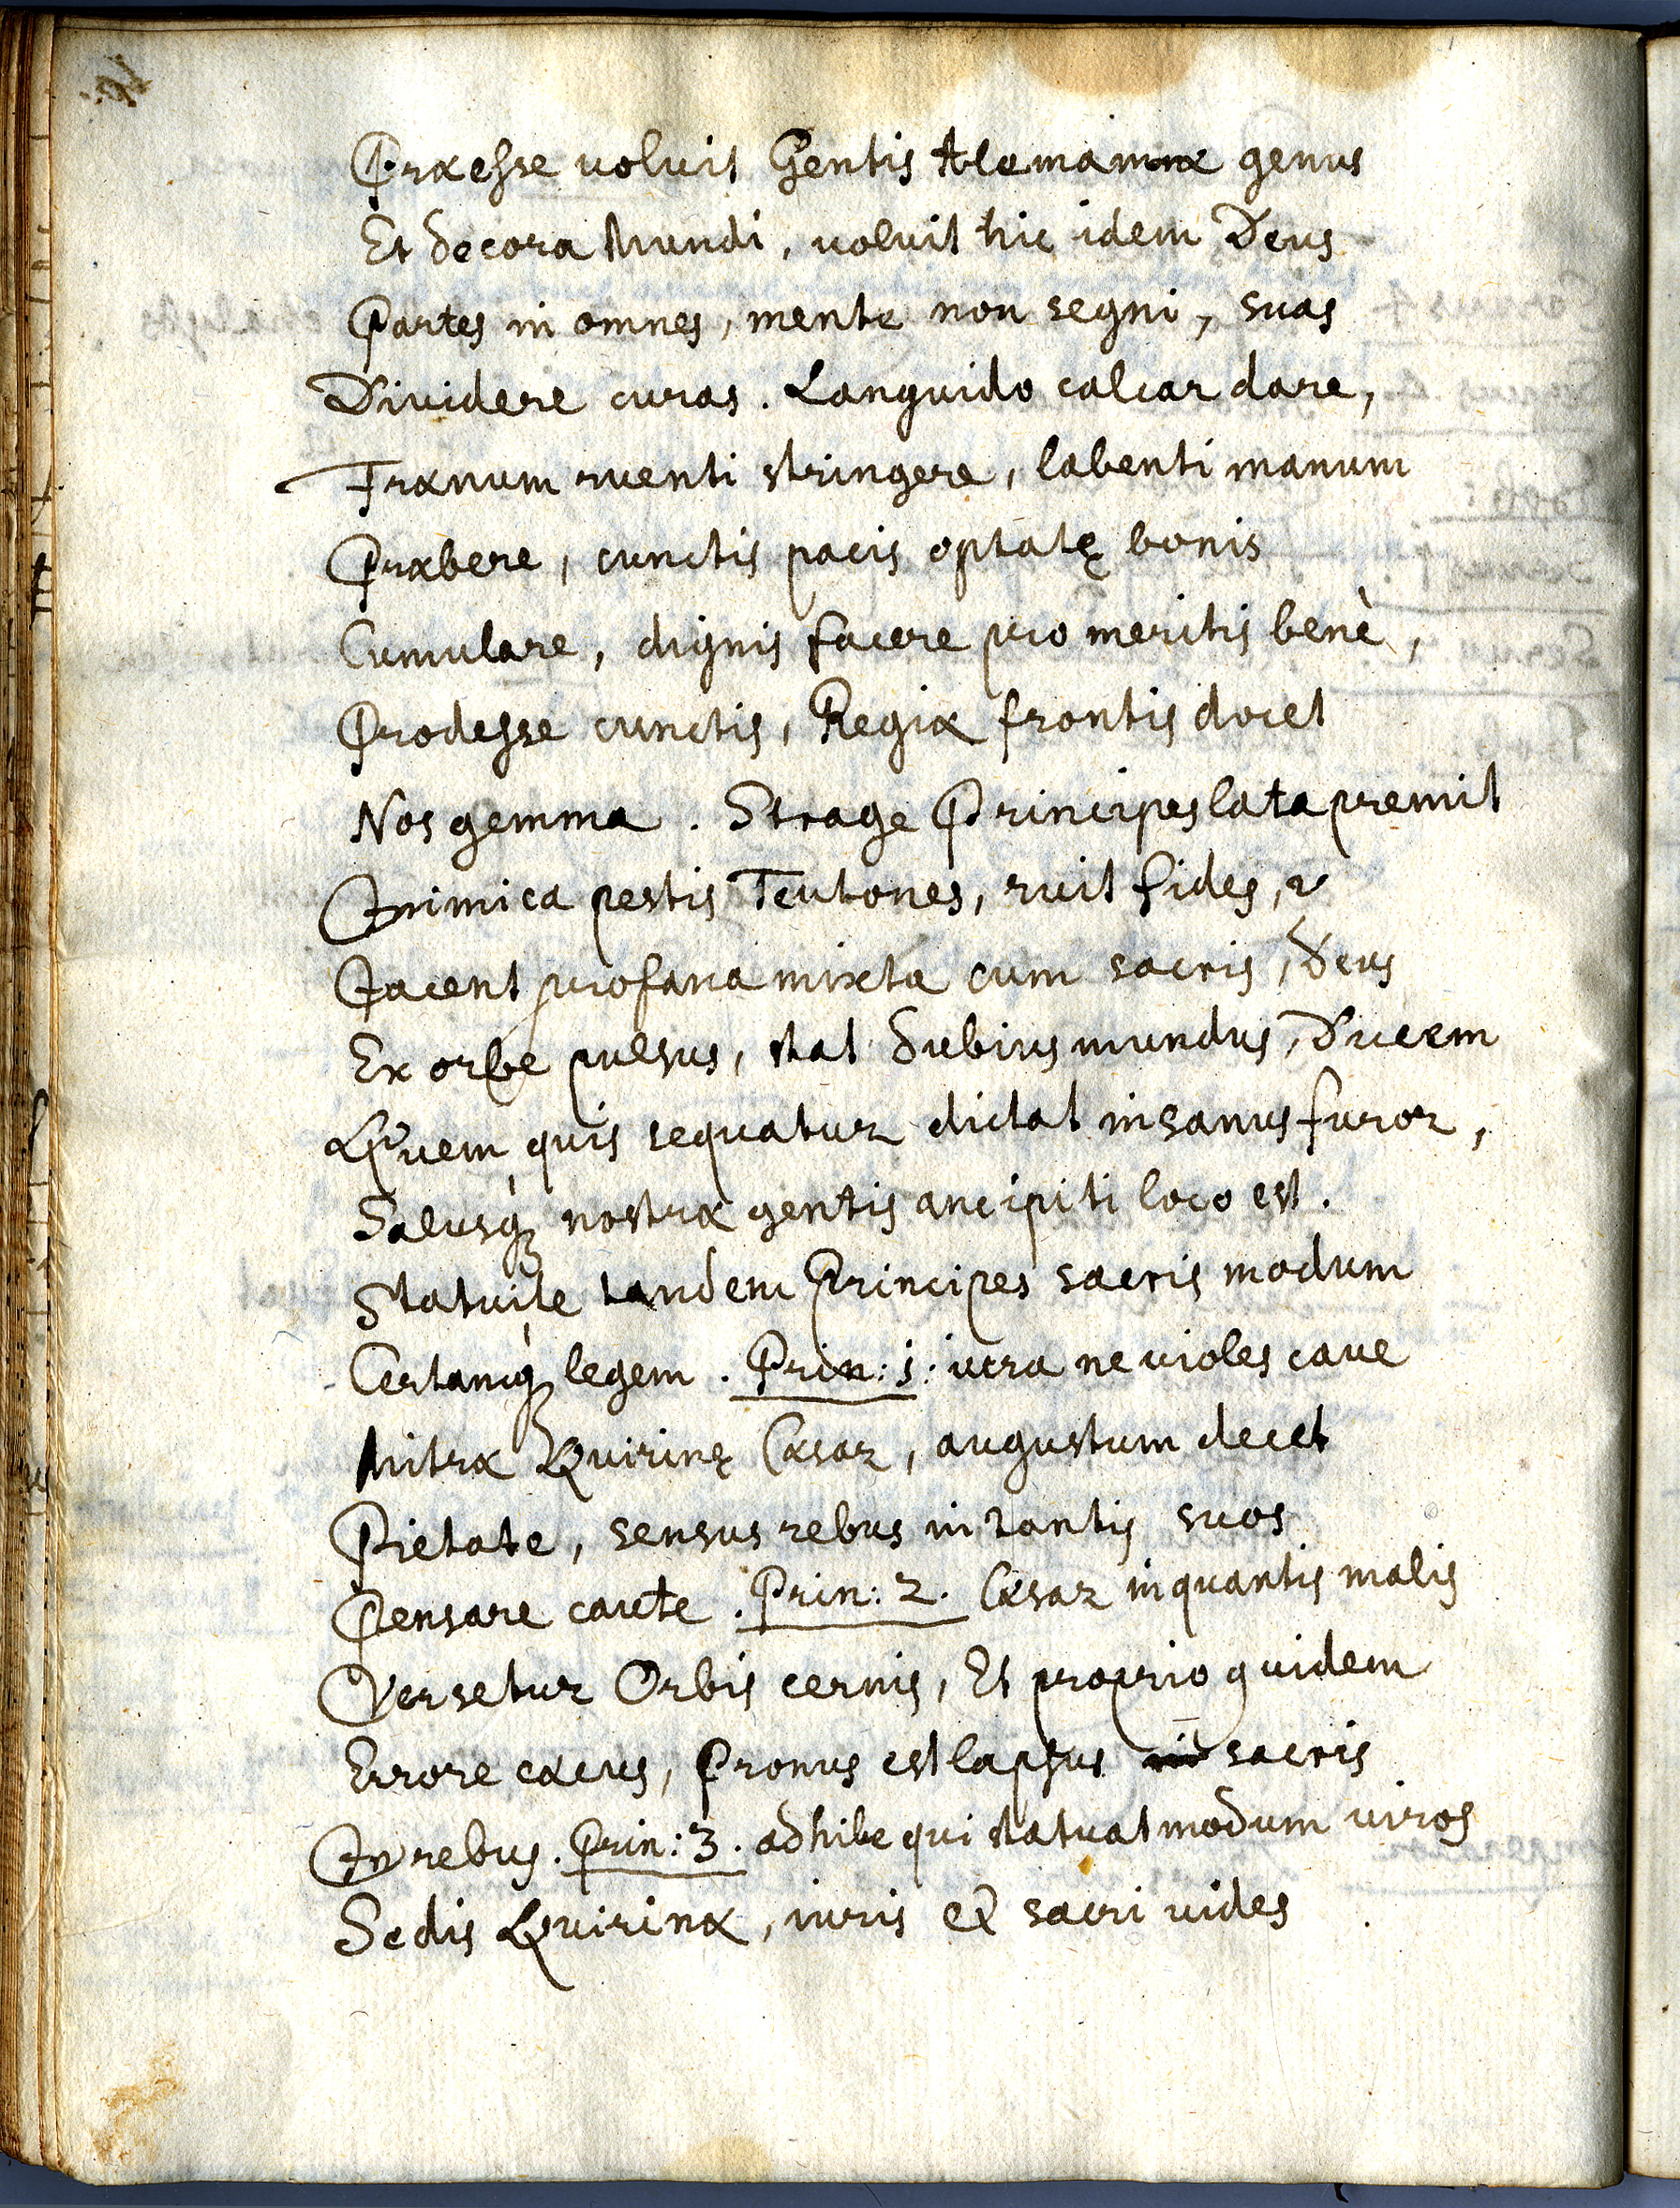 Præesse voluit Gentis Alemannæ genus
Et decora Mundi, voluit hic idem Deus
Partes in omnes, mente non segni, suas
Dividere curas. Languido calcar dare,
Frænum ruenti stringere, labenti manum
Præbere, cunctis pacis optatę bonis
Cumulare, dignis facere pro meritis benè,
Prodesse cunctis, Regiæ frontis docet
Nos gemma. Strage Principes lata premit
Inimica pestis Teutones, ruit fides, &
Iacent profana mixta cum sacris, Deus
Ex orbe pulsus, stat dubius mundus, Ducem
Quem quis sequatur dictat insanus furor,
Salusq; nostræ gentis ancipiti loco est.
Statuite tandem Principes sacris modum
Certamq; legem. Prin: 1: iura ne violes cave
Mitræ Quirinę Cæsar, augustum decet
Pietate, sensus rebus in tantis suos
Pensare caute. Prin: 2. Cæsar in quantis malis
Versetur Orbis cernis, Et proprio quidem
Errore cæcus, Pronus est lapsus sacris
In rebus. Prin: 3. adhibe qui statuat modum viros
Sedis Quirinæ, iuris & sacri vides